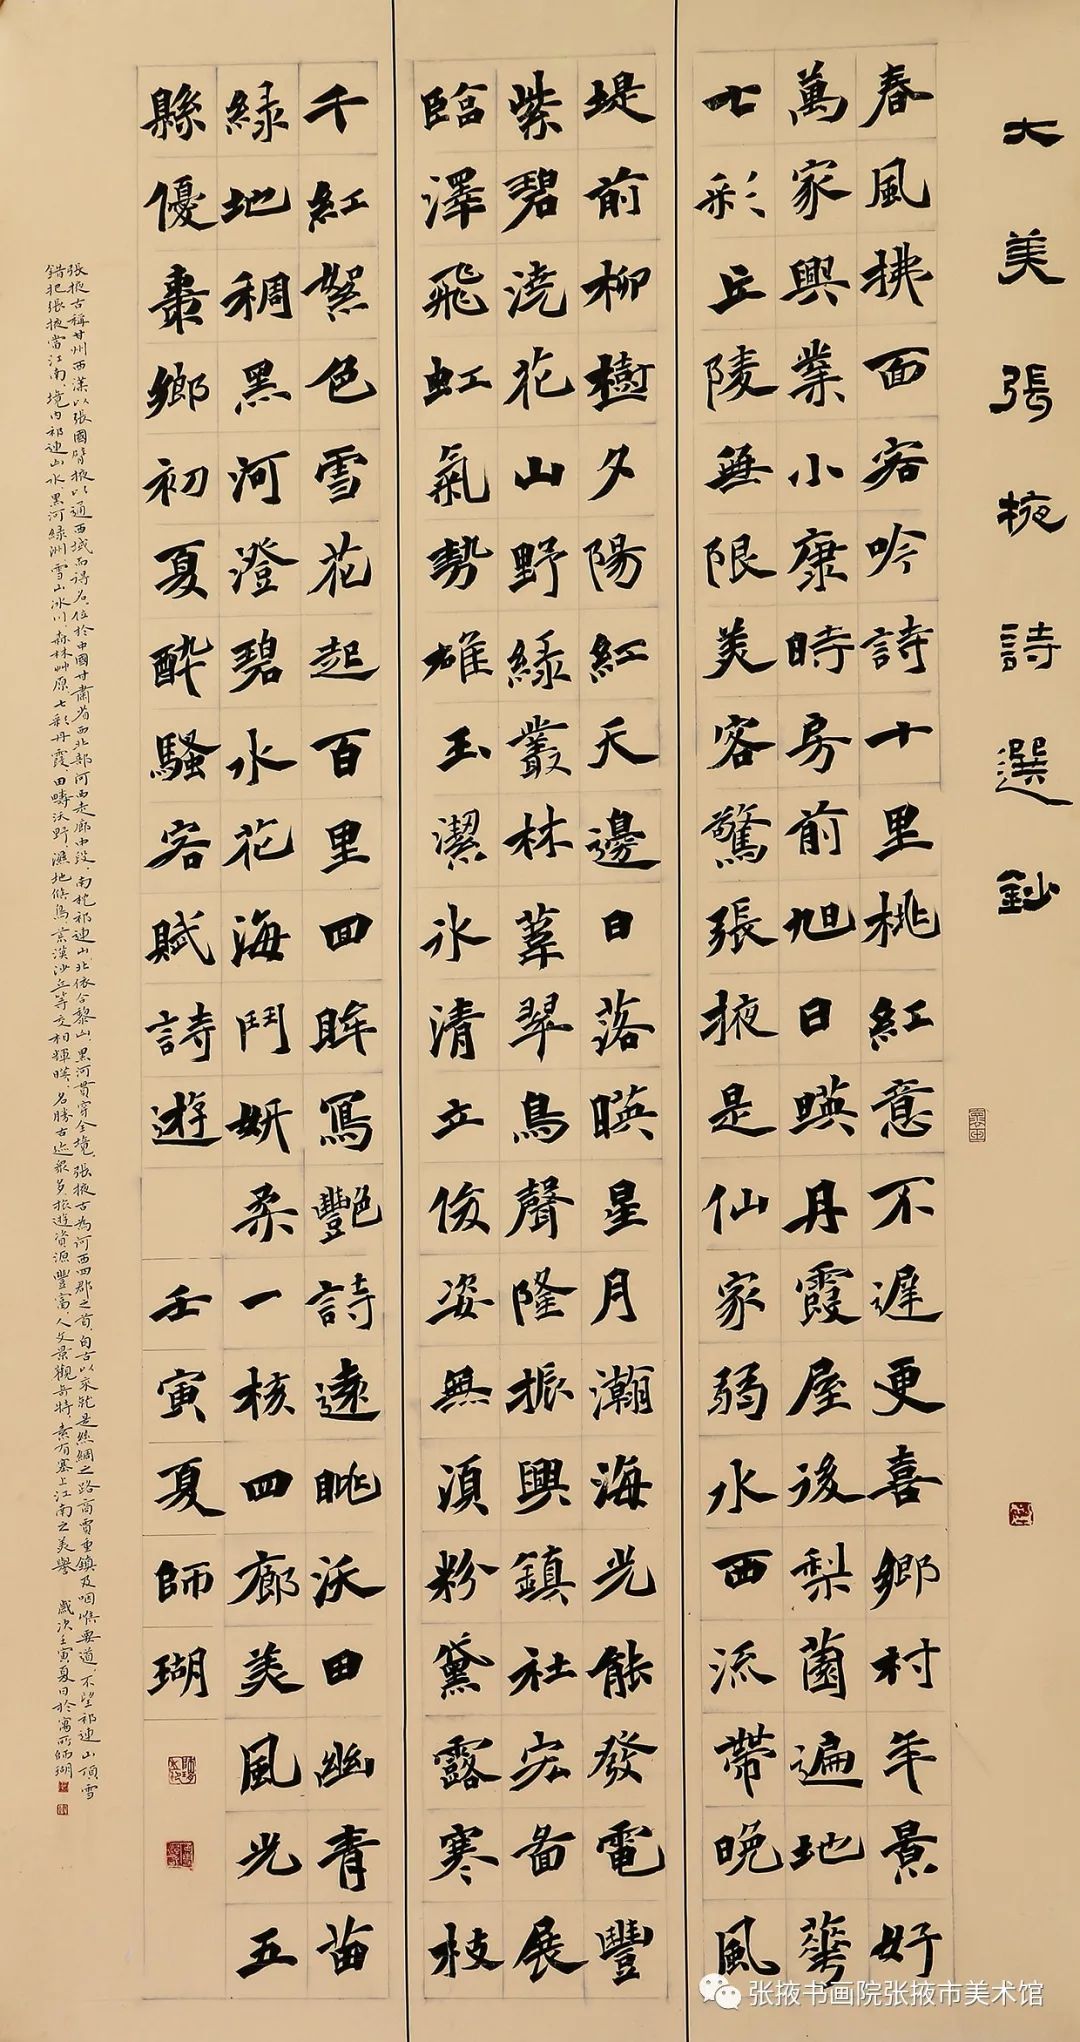 大美張掖詩選鈔
春風拂面客吟詩十里桃紅意不遲更喜鄉村年景好
萬家興業小康時房前旭日暎丹霞屋後梨園遍地華
七彩丘陵無限美客驚張掖是仙家弱水西流帶晚風
堤前柳樹夕陽紅天邊日落暎星月瀚海光能發電豐
紫碧澆花山野綠叢林葦翠鳥聲隆振興鎮社宏啚展
臨澤飛虹氣勢雄玉潔氷清立俊姿無須粉黛露寒枝
千紅絮色雪花起百里回眸寫豔詩遠眺沃田幽青苗
緑地稠黑河澄碧水花海鬥妍柔一核四廊美風光五
縣優棗鄉初夏醉騷客賦詩遊
壬寅夏師瑚
張掖古稱甘州西漢以張國臂掖以通西域而得名位於中國甘肅省西北部河西走廊中段南枕祁連山北依合黎山黑河貫穿全境張掖古為河西四郡之首自古以來就是絲綢之路商賈重鎮及咽喉要道不望祁連山頂雪
錯把張掖當江南境内祁連山水黑河緑洲雪山冰川森林艸原七彩丹霞田疇沃野濕地候鳥荒漠沙丘等交相輝暎名勝古迹衆多旅遊資源豐富人文景觀奇特素有塞上江南之美譽 歲次壬寅夏日於寓所師瑚
张掖书画院张掖市美术馆